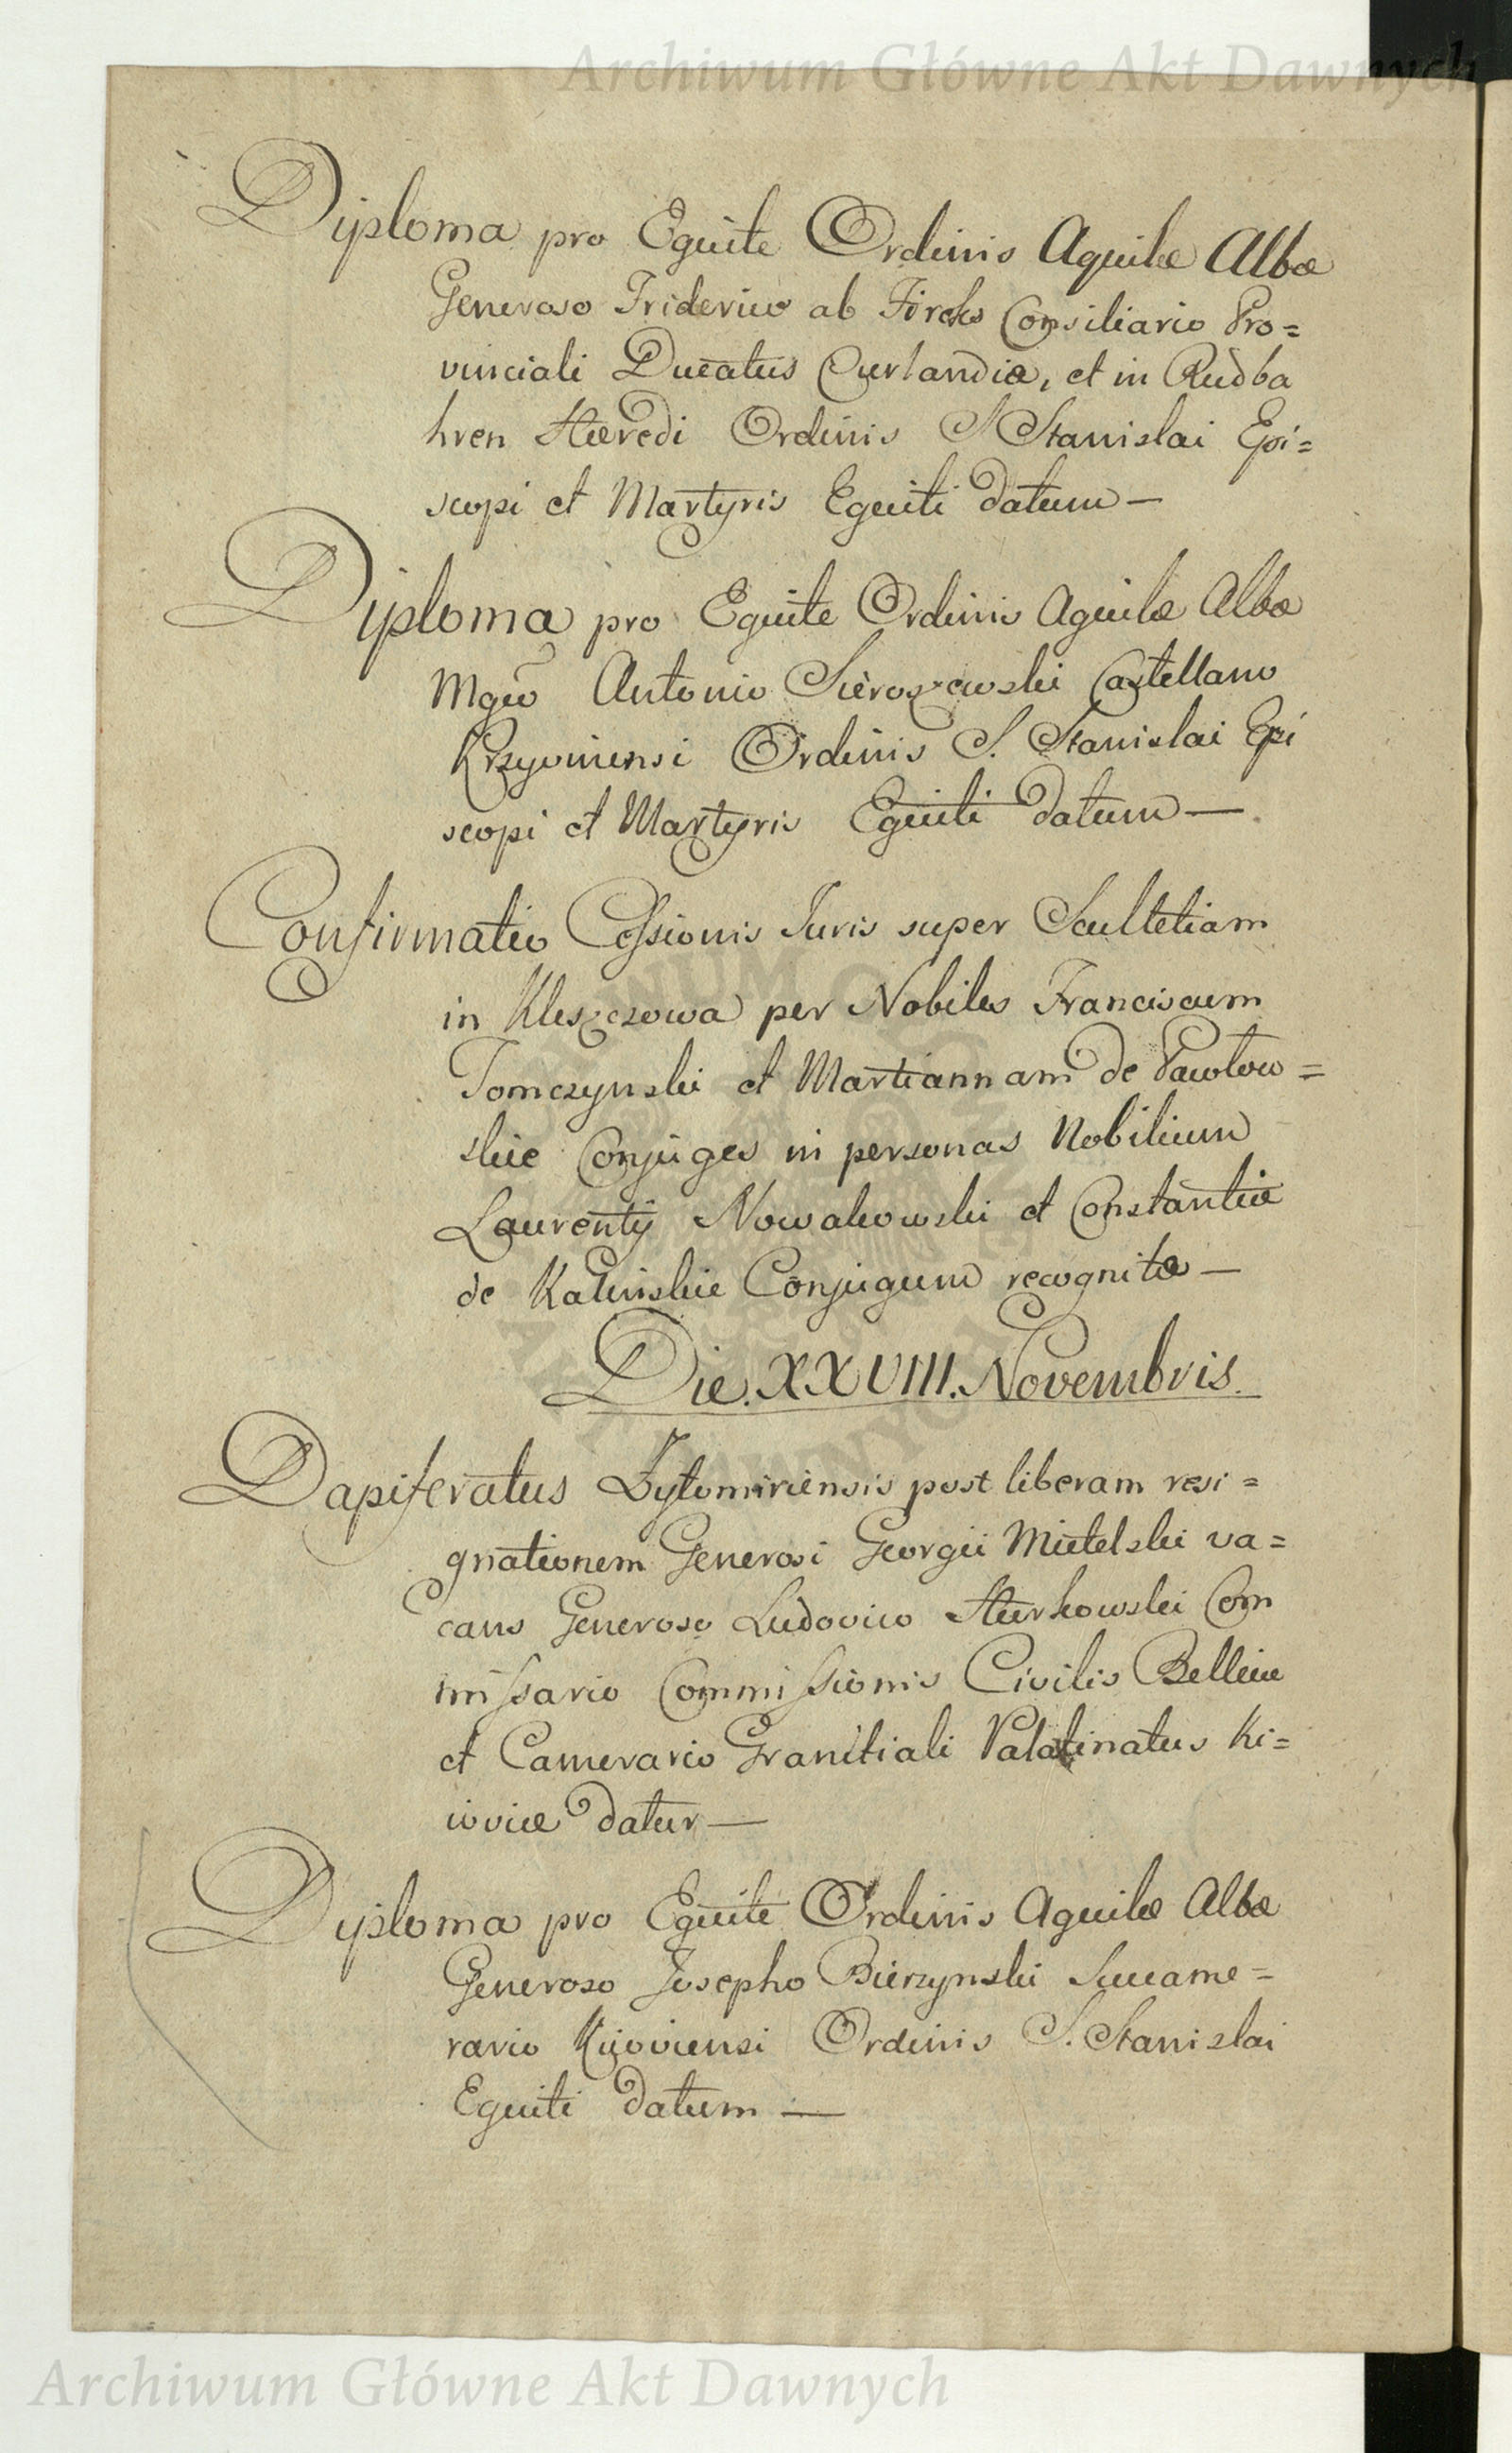 Archiwum Główne Akt Dawnych
Dyploma pro Equite Ordinis Aquilæ Albæ
Generoso Friderico ab Fircks Consiliario Pro=
vinciali Ducatus Curlandiæ, et in Rudba
hren Hæredi Ordinis S Stanislai Epi=
scopi et Martyris Equiti datum —
Dyploma pro Equite Ordinis Aquilæ Albæ
Mgco Antonio Sieroszewski Castellano
Krzyvinensi Ordinis S. Stanislai Epi
scopi et Martyris Equiti datum —
Confirmatio Cessionis Juris super Scultetiam
in Kleszczowa per Nobiles Franciscum
Tomczynski et Martiannam de Pawłow=
skie Conjuges in personas Nobilium
Laurentij Nowakowski et Constantiæ
de Kalinskie Conjugum recognitæ —
Die. XXVIII. Novembris.
Dapiferatus Zytomiriensis post liberam resi=
gnationem Generosi Georgii Mietelski va=
cans Generoso Ludovico Hurkowski Com
missario Commissionis Civilis Bellicæ
et Camerario Granitiali Palatinatus Ki=
ioviæ datur —
Dyploma pro Equite Ordinis Aquilæ Albæ
Generoso Josepho Bierzynski Succame=
rario Kijoviensi Ordinis S. Stanislai
Equiti datum —
Archiwum Główne Akt Dawnych